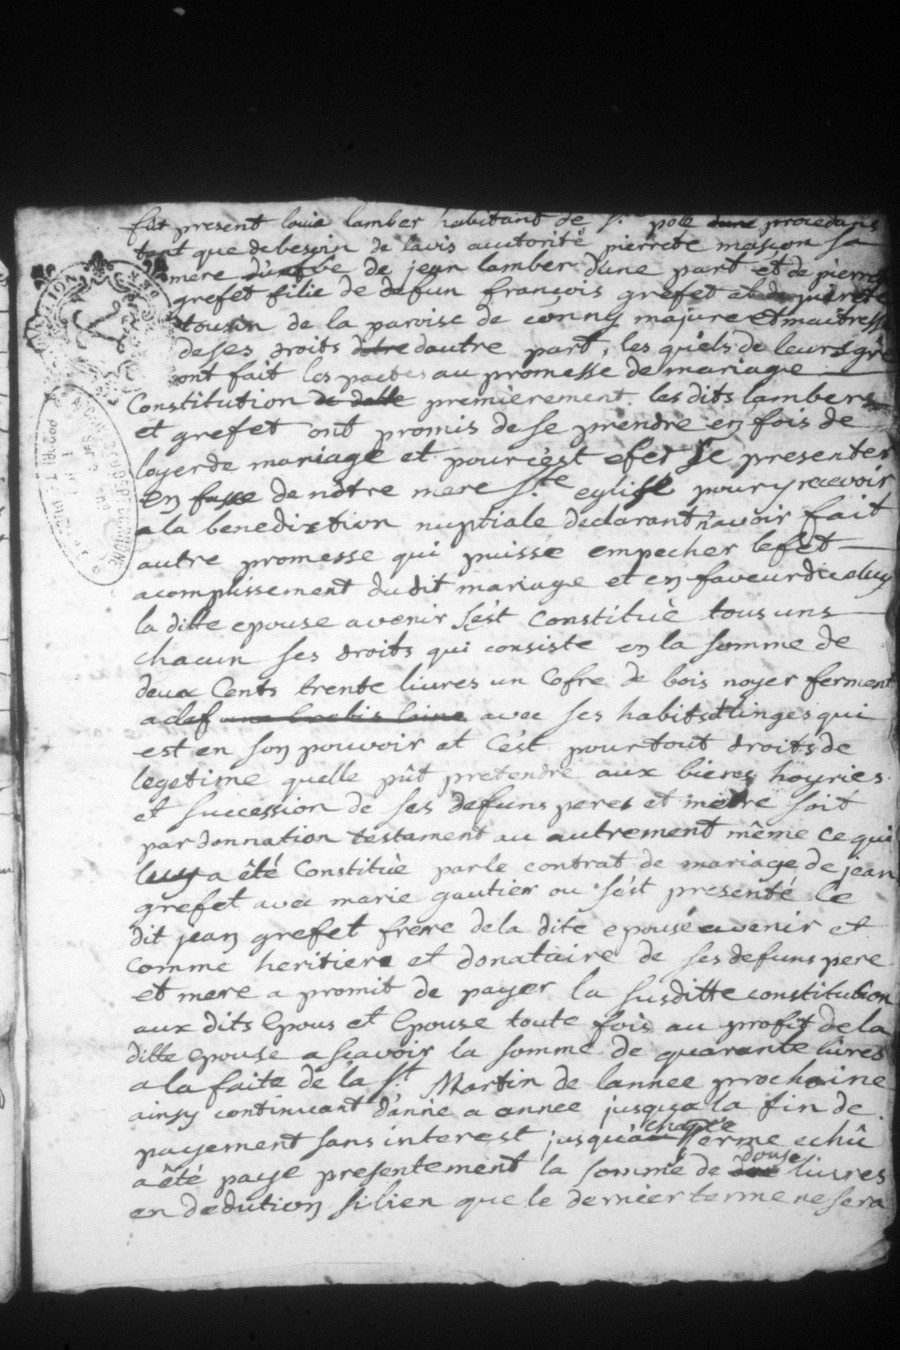 fut present louis lamber habitant de s.t pole dune procedans
tant que de besoin de lavis auctorité pierrete masson sa
mere d'ufve de jean lamber d'une part et de pierrete
grefet filie de defun françois grefet et de pierrete
tousin de la paroise de conny majure et maitresse
de ses droits dautre part, les quels de leurs gré
ont fait les pactes au promesse de mariage
Constitution de dotte premierement. les dits lambers
et grefet ont promis de se prendre en fois de
loyer de mariage et pour cest efet se presenter
en fasse de nôtre mere S.te eglise pour y recevoir
a la benedixtion nuptiale declarant n'avoir fait
autre promesse qui puisse empecher lefet
acomplissement du dit mariage et en faveur diceluy
la ditte epouse avenir s'ést Constituè tous uns
chacun ses droits qui consiste en la somme de
deux Cents trente livres un Cofre de bois noyer ferment
a clef une brebis laine avec ses habits et linges qui
est en son pouvoir et C'est pour tout droits de
legetime quelle pût pretendre aux bieres hoyries
et succession de ses defuns peres et mere soit
par donnation testament au autrement même ce qui
luy a êté Constituè par le contrat de mariage de jean
grefet avec marie gautier ou s'ést presenté le
dit jean grefet frere de la dite epouse avenir et
comme heritiere et donataire de ses defuns pere
et mere a promit de payer la susditte constitution
aux dits Epous et Epouse toute fois au profit de la
ditte epouse a scavoir la somme de quarante livres
a la faite de la S.t Martin de lannee prochaine
ainsy continuant d'anne a annee jusqua la fin de
payement sans interest jusquà chaque terme echû
a êté paye presentement la somme de douse livres
en dedution si lien que le dernier terme ne sera